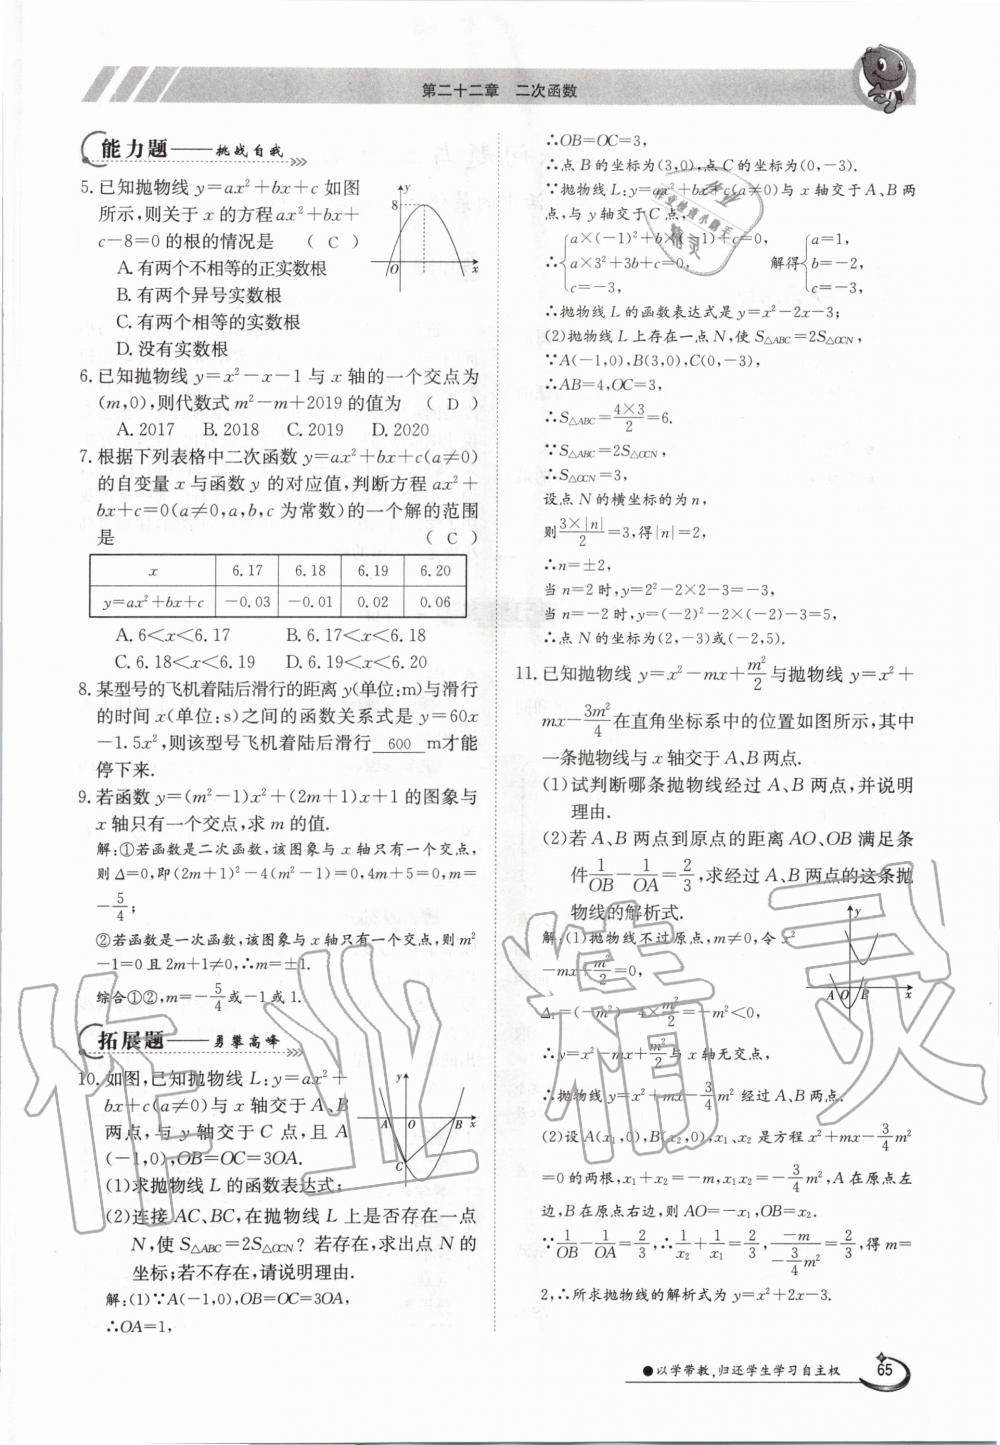 第二十二章 二次函数
能力题——挑战自我
5. 已知抛物线 y=ax²+bx+c 如图
所示,则关于 x 的方程 ax²+bx+
c-8=0 的根的情况是 ( C )
A. 有两个不相等的正实数根
B. 有两个异号实数根
C. 有两个相等的实数根
D. 没有实数根
y
8
O
x
6. 已知抛物线 y=x²-x-1 与 x 轴的一个交点为
(m,0),则代数式 m²-m+2019 的值为 ( D )
A. 2017 B. 2018 C. 2019 D. 2020
7. 根据下列表格中二次函数 y=ax²+bx+c(a≠0)
的自变量 x 与函数 y 的对应值,判断方程 ax²+
bx+c=0(a≠0,a,b,c 为常数)的一个解的范围
是 ( C )
x 6.17 6.18 6.19 6.20
y=ax²+bx+c -0.03 -0.01 0.02 0.06
A. 6<x<6.17 B. 6.17<x<6.18
C. 6.18<x<6.19 D. 6.19<x<6.20
8. 某型号的飞机着陆后滑行的距离 y(单位:m)与滑行
的时间 x(单位:s)之间的函数关系式是 y=60x
-1.5x²,则该型号飞机着陆后滑行 600 m才能
停下来.
9. 若函数 y=(m²-1)x²+(2m+1)x+1 的图象与
x 轴只有一个交点,求 m 的值.
解:①若函数是二次函数,该图象与 x 轴只有一个交点,
则 Δ=0,即(2m+1)²-4(m²-1)=0,4m+5=0,m=
-5/4;
②若函数是一次函数,该图象与 x 轴只有一个交点,则 m²
-1=0 且 2m+1≠0,∴m=±1.
综合①②,m=-5/4或-1或1.
拓展题——勇攀高峰
10. 如图,已知抛物线 L:y=ax²+
bx+c(a≠0)与 x 轴交于 A、B
两点,与 y 轴交于 C 点,且 A
(-1,0),OB=OC=3OA.
(1)求抛物线 L 的函数表达式;
(2)连接 AC、BC,在抛物线 L 上是否存在一点
N,使 S△ABC=2S△OCN?若存在,求出点 N 的
坐标;若不存在,请说明理由.
y
A O B x
C
解:(1)∵A(-1,0),OB=OC=3OA,
∴OA=1,
∴OB=OC=3,
∴点 B 的坐标为(3,0),点 C 的坐标为(0,-3).
∵抛物线 L:y=ax²+bx+c(a≠0)与 x 轴交于 A、B 两
点,与 y 轴交于 C 点,
∴{a×(-1)²+b×(-1)+c=0, a×3²+3b+c=0, c=-3, 解得{a=1, b=-2, c=-3,
∴抛物线 L 的函数表达式是 y=x²-2x-3;
(2)抛物线 L 上存在一点 N,使 S△ABC=2S△OCN,
∵A(-1,0),B(3,0),C(0,-3),
∴AB=4,OC=3,
∴S△ABC=4×3/2=6.
∵S△ABC=2S△OCN,
∴S△OCN=3,
设点 N 的横坐标的为 n,
则3×|n|/2=3,得|n|=2,
∴n=±2,
当 n=2 时,y=2²-2×2-3=-3,
当 n=-2 时,y=(-2)²-2×(-2)-3=5,
∴点 N 的坐标为(2,-3)或(-2,5).
11. 已知抛物线 y=x²-mx+m²/2与抛物线 y=x²+
mx-3m²/4在直角坐标系中的位置如图所示,其中
一条抛物线与 x 轴交于 A、B 两点.
(1)试判断哪条抛物线经过 A、B 两点,并说明
理由.
(2)若 A、B 两点到原点的距离 AO、OB 满足条
件1/OB-1/OA=2/3,求经过 A、B 两点的这条抛
物线的解析式.
y
A O B x
解:(1)抛物线不过原点,m≠0,令 x²
-mx+m²/2=0,
Δ₁=(-m)²-4×m²/2=-m²<0,
∴y=x²-mx+m²/2与 x 轴无交点,
∴抛物线 y=x²+mx-3/4m² 经过 A、B 两点.
(2)设 A(x₁,0),B(x₂,0),x₁、x₂ 是方程 x²+mx-3/4m²
=0 的两根,x₁+x₂=-m,x₁x₂=-3/4m²,A 在原点左
边,B 在原点右边,则 AO=-x₁,OB=x₂.
∵1/OB-1/OA=2/3,∴1/x₂+1/x₁=2/3,-m/(-3/4m²)=2/3,得 m=
2,∴所求抛物线的解析式为 y=x²+2x-3.
●以学带教,归还学生学习自主权
65
作业精灵